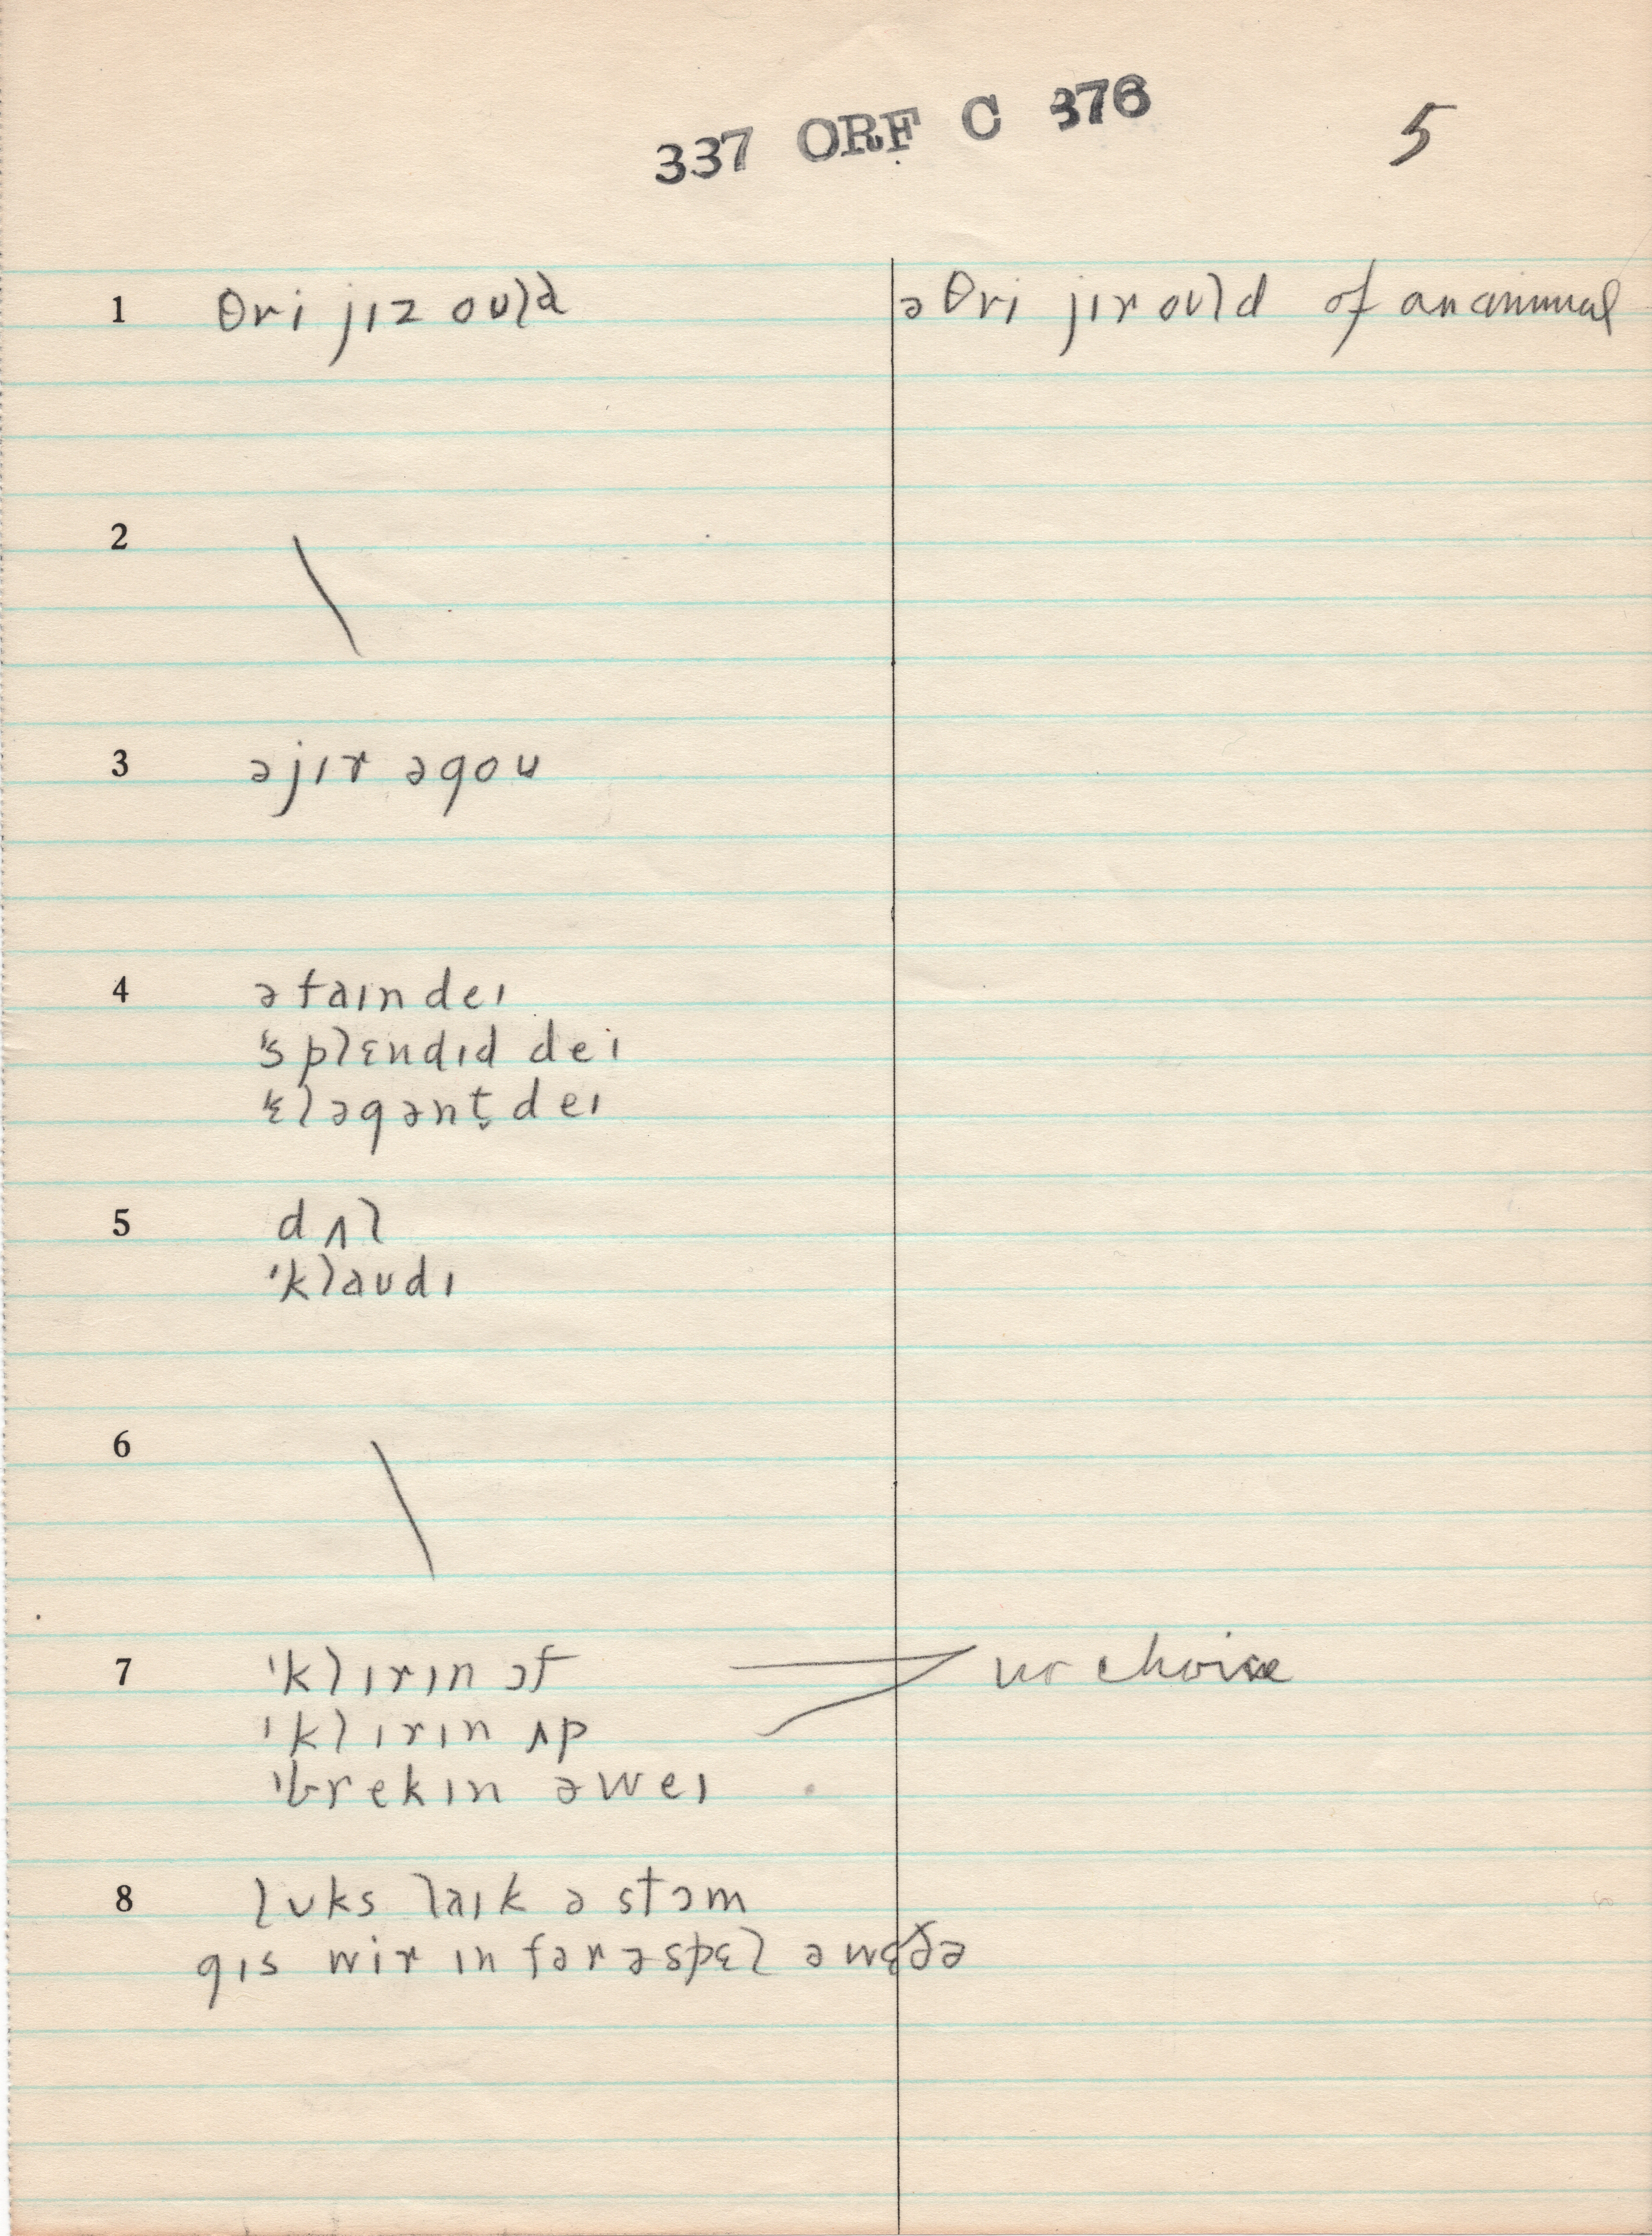 337 ORF C 376
5
1 θri jɪz ould ə θri jɪr ould of an animal
2 \
3 ə jɪr əgou
4 ə faɪn deɪ
ˈsplɛndɪd deɪ
ˈɛləgənt̬ deɪ
5 dʌl
ˈklaudɪ
6 \
7 ˈklɪrɪn ɔf no choice
ˈklɪrɪn ʌp
ˈbrekɪn əweɪ
8 luks laɪk ə stɔm
gɪs wir in fər ə spɛl ə wɛðə